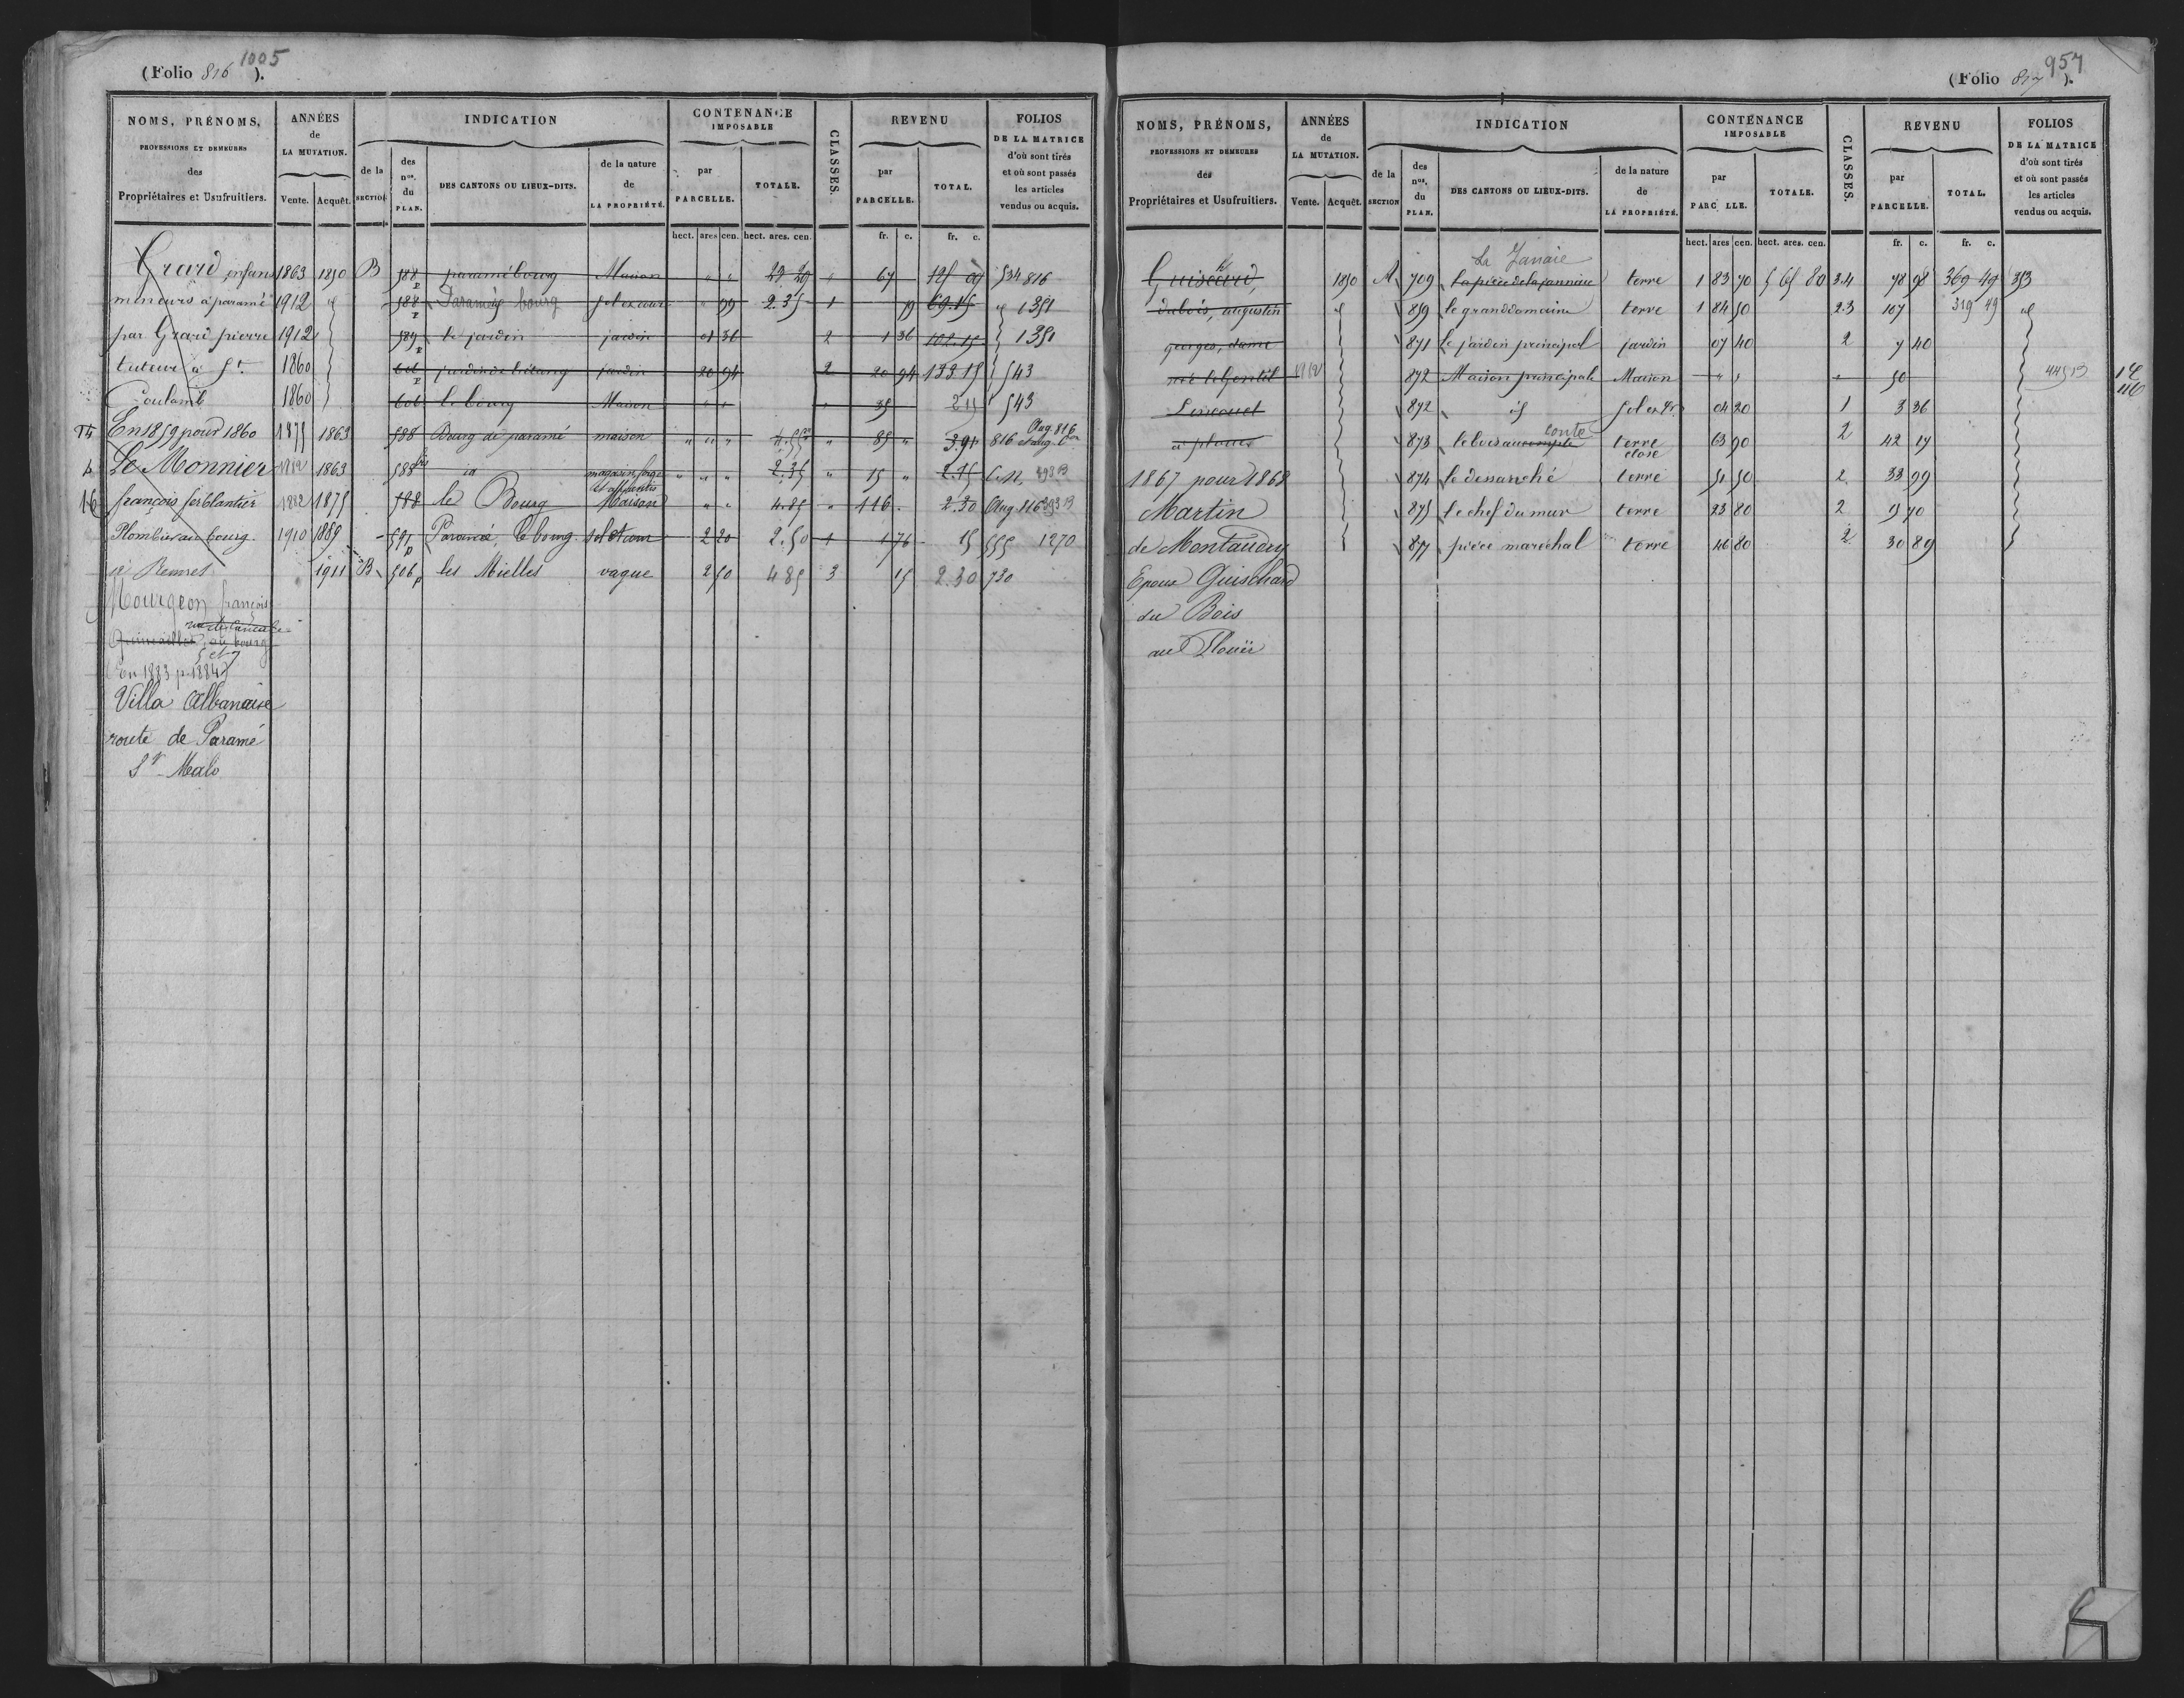 (Folio 816 ). 1005
NOMS, PRÉNOMS, PROFESSIONS ET DEMEURES des Propriétaires et Usufruitiers.
ANNÉES de LA MUTATION. Vente. Acquêt.
INDICATION
de la SECTION
des nos. du PLAN.
DES CANTONS OU LIEUX-DITS.
de la nature de LA PROPRIÉTÉ.
CONTENANCE IMPOSABLE
par PARCELLE. TOTALE.
CLASSES.
REVENU
par PARCELLE. TOTAL.
FOLIOS DE LA MATRICE d'où sont tirés et où sont passés les articles vendus ou acquis.
hect. ares cen. hect. ares. cen. fr. c. fr. c.
Grard, enfans 1863 1850 B 588 p paramé bourg Maison " " 23 29 " 67 534 816
mineurs à paramé 1912 id 588 p Paramé bourg sol et cour " 99 2.35 1 99 69.15 id 1351
par Grard pierre 1912 589 p le jardin jardin 01 36 2 1 36 102.15 1351
tuteur à St. 1860 601 p jardin de l'étang jardin 20 94 2 20 94 133 15 543
Coulomb 1860 606 le bourg Maison " " " 35 2 15 543
T4 En 1859 pour 1860 1875 1863 588 Bourg de paramé maison " " " 4.55 " 85 " 3.91 816 Aug. 816
4 Le Monnier 1882 1863 588 bis id magasin, forge et appentis " " " 2.35 " 15 " 2.15 C.N. 293 B
16 françois ferblantier 1882 1875 588 le Bourg Maison " " 4.85 " 116 . 2.30 Aug. 816 293 B
Plombier au bourg. 1910 1889 591 p Paramé, le bourg. sol et cour 2 20 2.50 1 1 76 15 555 1270
à Rennes 1911 B 506 p les Mielles vague 2 50 4 85 3 15 2.30 730
Mourgeon françois
Quincailler, au bourg
5 et 7
En 1883 p. 1884
Villa Albanaise
route de Paramé
St Malo
(Folio 817 ). 957
NOMS, PRÉNOMS, PROFESSIONS ET DEMEURES des Propriétaires et Usufruitiers.
ANNÉES de LA MUTATION. Vente. Acquêt.
INDICATION
de la SECTION
des nos. du PLAN.
DES CANTONS OU LIEUX-DITS.
de la nature de LA PROPRIÉTÉ.
CONTENANCE IMPOSABLE
par PARC LLE. TOTALE.
CLASSES.
REVENU
par PARCELLE. TOTAL.
FOLIOS DE LA MATRICE d'où sont tirés et où sont passés les articles vendus ou acquis.
hect. ares cen. hect. ares. cen. fr. c. fr. c.
La Janaie
Guischard, 1850 A 709 la pièce de la jannaie terre 1 83 70 5 65 80 3.4 78 98 369 49 353
dubois, augustin id 859 le grand domaine terre 1 84 50 2.3 107 319 49 id
georges, dame 871 le jardin principal jardin 07 40 2 7 40
née le gentil 1912 872 Maison principale Maison " " " 50 445 B 14 116
Lescouet 872 id sol et 04 20 1 3 36
conte
à plouer 873 le bois au compte terre close 63 90 2 42 17
1867 pour 1868 874 le desanché terre 51 50 2 33 99
Martin 875 le chef du mur terre 23 80 2 15 70
de Montaudry 877 pièce maréchal terre 46 80 2 30 89
Epoux Guischard
du Bois
au Plouër